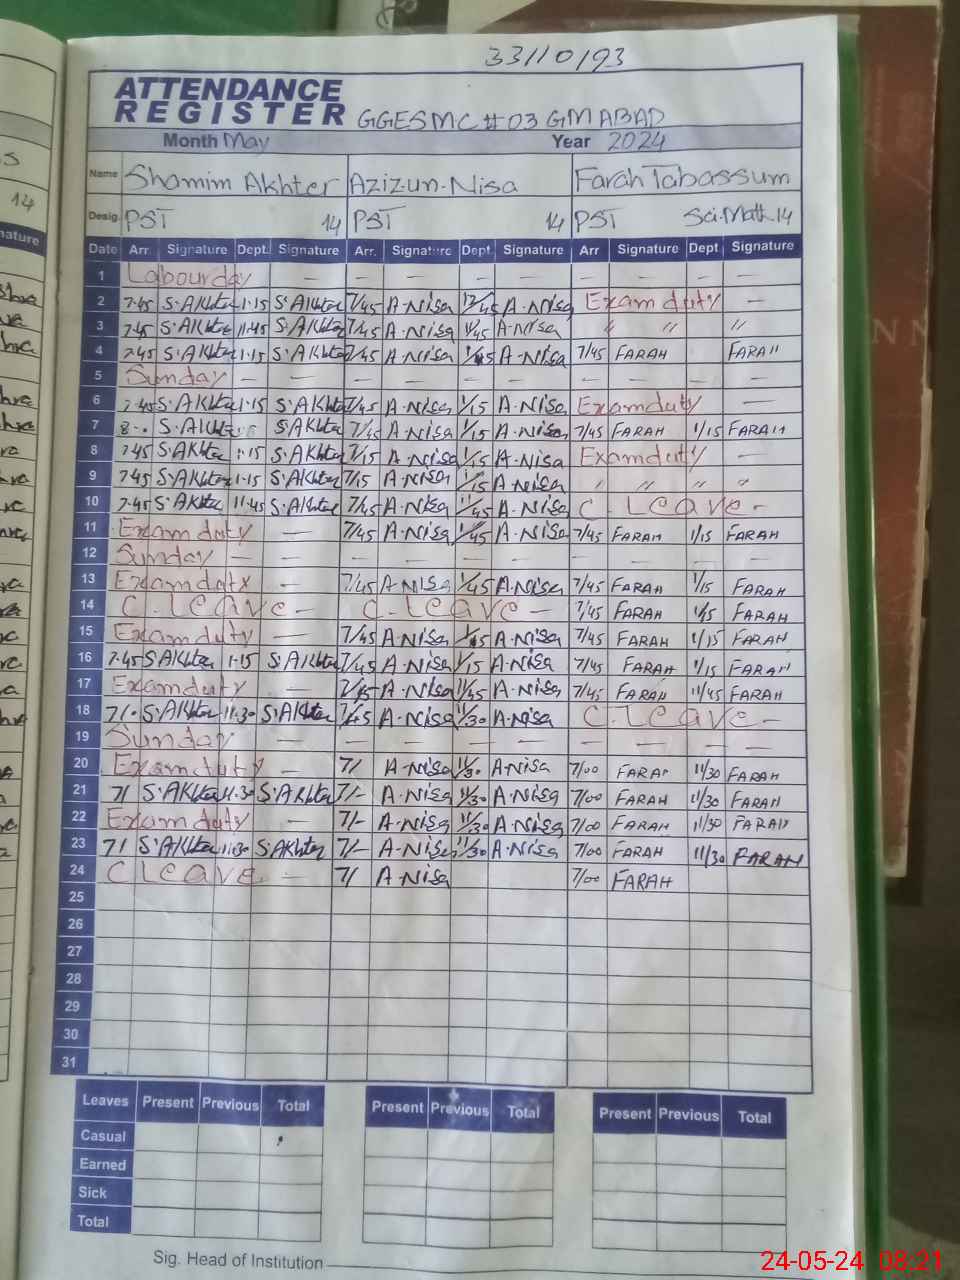 33110193
ATTENDANCE
REGISTER GGESMC # 03 GM ABAD
Month May Year 2024
Name Shamim Akhter Aziz-un-Nisa Farah Tabassum
Desig. PST 14 PST 14 PST Sci.Math.14
Date Arr. Signature Dept. Signature Arr. Signature Dept. Signature Arr Signature Dept. Signature
1 Labour day — — — — — — — — — —
2 7.45 S.AKhter 1.15 S.AKhter 7/45 A.Nisa A.Nisa Exam duty —
3 7.45 S.AKhter 11.45 S.AKhter 7/45 A.Nisa 11/45 A.Nisa " " "
4 7.45 S.AKhter 1.15 S.AKhter 7/45 A.Nisa A.Nisa 7/45 FARAH FARAH
5 Sunday — — — — — — — — — —
6 7.45 S.AKhter 1.15 S.AKhter 7/45 A.Nisa 1/15 A.Nisa Exam duty —
7 S.AKhter S.AKhter 7/45 A.Nisa 1/15 A.Nisa 7/45 FARAH 1/15 FARAH
8 7.45 S.AKhter 1.15 S.AKhter 7/15 A.Nisa 1/15 A.Nisa Exam duty —
9 7.45 S.AKhter 1.15 S.AKhter 7/15 A.Nisa 1/15 A.Nisa " " " "
10 7.45 S.AKhter 11.45 S.AKhter 7/45 A.Nisa 11/45 A.Nisa C. Leave -
11 Exam duty — 7/45 A.Nisa A.Nisa 7/45 FARAH 1/15 FARAH
12 Sunday — — — — — — — — — —
13 Exam duty — 7/45 A.Nisa 1/45 A.Nisa 7/45 FARAH 1/15 FARAH
14 C. Leave - C. Leave - 7/45 FARAH 1/15 FARAH
15 Exam duty — 7/45 A.Nisa A.Nisa 7/45 FARAH 1/15 FARAH
16 7.45 S.AKhter 1.15 S.AKhter 7/45 A.Nisa 1/15 A.Nisa 7/45 FARAH 1/15 FARAH
17 Exam duty — A.Nisa 11/45 A.Nisa 7/45 FARAH 11/45 FARAH
18 S.AKhter 11.30 S.AKhter 7/45 A.Nisa 11/30 A.Nisa C. Leave -
19 Sunday — — — — — — — — — —
20 Exam duty — 7/ A.Nisa 11/30 A.Nisa 7/00 FARAH 11/30 FARAH
21 7/ S.AKhter 11.30 S.AKhter 7/- A.Nisa 11/30 A.Nisa 7/00 FARAH 11/30 FARAH
22 Exam duty — 7/- A.Nisa 11/30 A.Nisa 7/00 FARAH 11/30 FARAH
23 7/ S.AKhter 11.30 S.AKhter 7/- A.Nisa 11/30 A.Nisa 7/00 FARAH 11/30 FARAH
24 C Leave - 7/ A.Nisa 7/00 FARAH
25
26
27
28
29
30
31
Leaves Present Previous Total Present Previous Total Present Previous Total
Casual
Earned
Sick
Total
Sig. Head of Institution
24-05-24 08:21